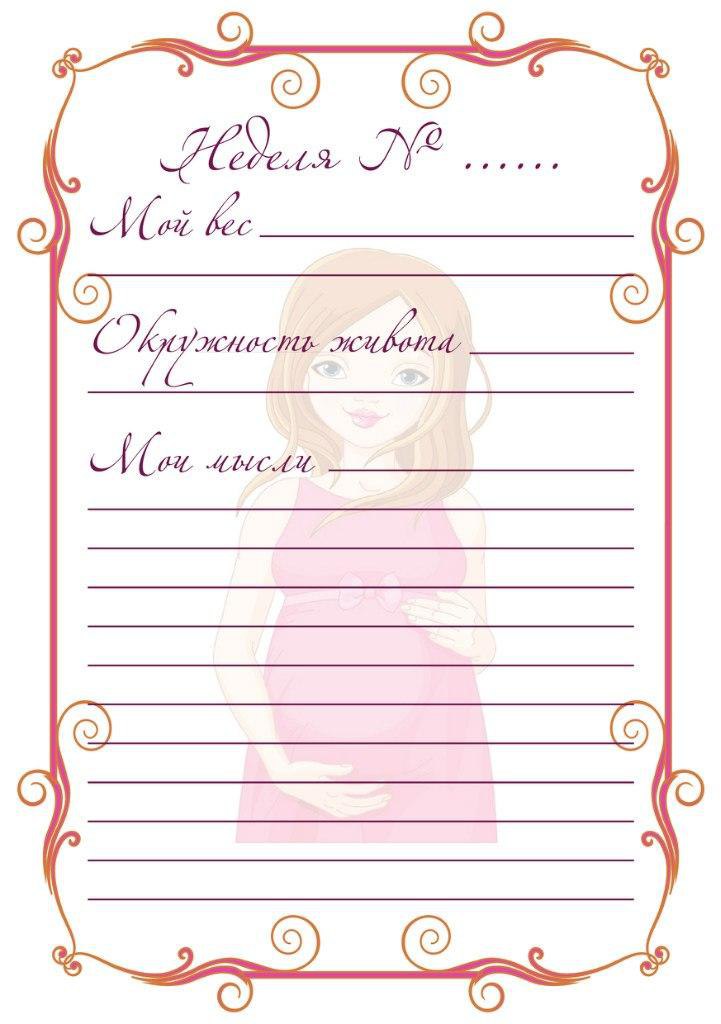 Неделя № ......
Мой вес
Окружность живота
Мои мысли